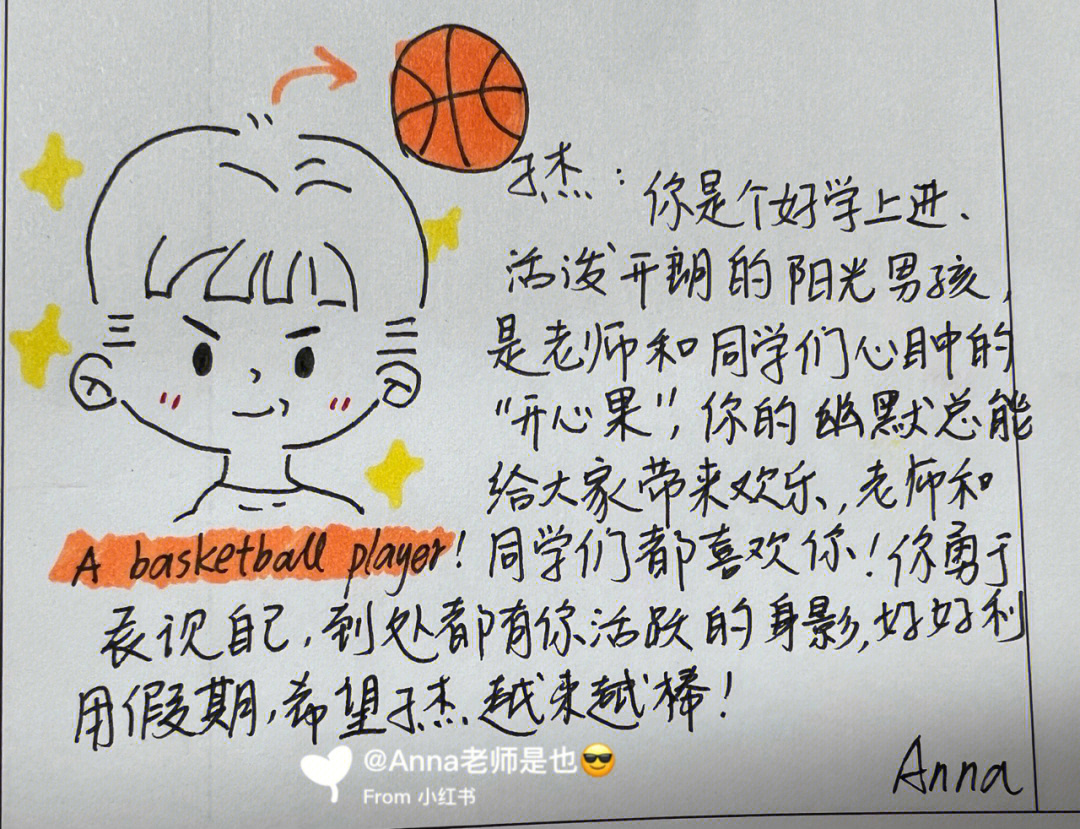 子杰：你是个好学上进、
活泼开朗的阳光男孩，
是老师和同学们心目中的
“开心果”，你的幽默总能
给大家带来欢乐，老师和
A basketball player! 同学们都喜欢你！你勇于
表现自己，到处都有你活跃的身影，好好利
用假期，希望子杰越来越棒！
Anna
@Anna老师是也😎
From 小红书